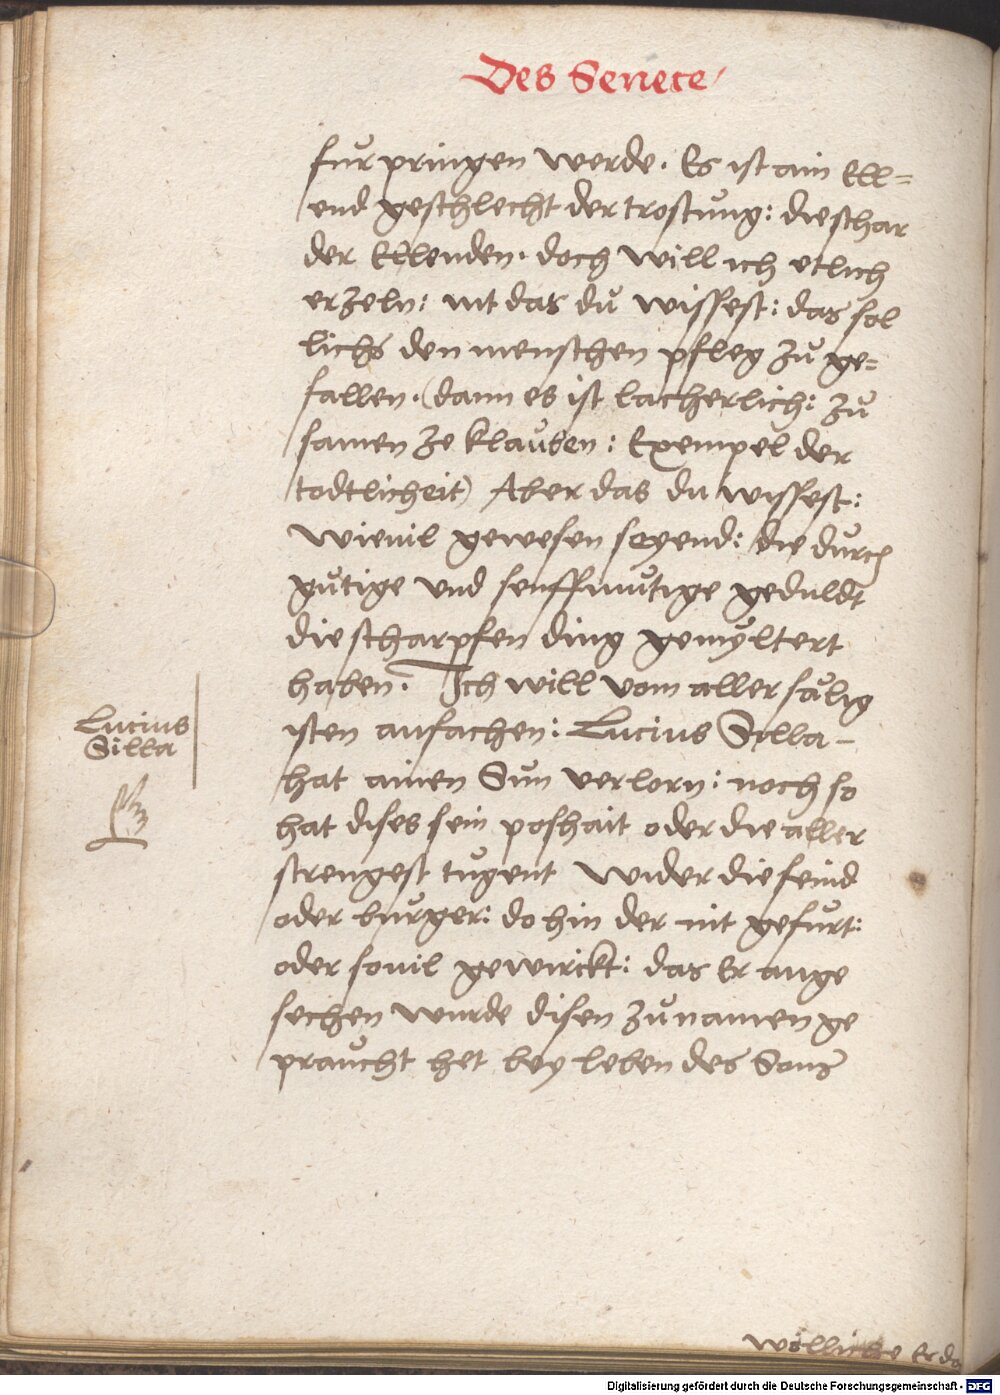 Des Senece
fur pringen werde. Es ist ain Ell=
end geschlecht der trostung: die schar
der Ellenden. doch will ich etlich
erzeln: nit das dů wissest: das sol
lichs den menschen pfleg zů ge=
fallen. (dann es ist lacherlich: zů
samen ze klauben: Exempel der
todtlicheit) Aber das du wissest:
wieuil gewesen seyend: die durch
gůtige vnd senfftmůtige geduldt
die scharpfen ding gemyltert
haben. Ich will vom aller sälig
isten anfachen: Lucius Silla -
hat ainen Sun verlorn: noch so
Lucius
Silla
hat dises sein poshait oder die aller
strengest tugent wider die feind
oder burger: do hin der nit gefurt:
oder souil gewirckt: das Er ange
sechen wurde disen zůnamen ge
praucht het bey leben des Sons
wöllicher Er do
Digitalisierung gefördert durch die Deutsche Forschungsgemeinschaft - DFG